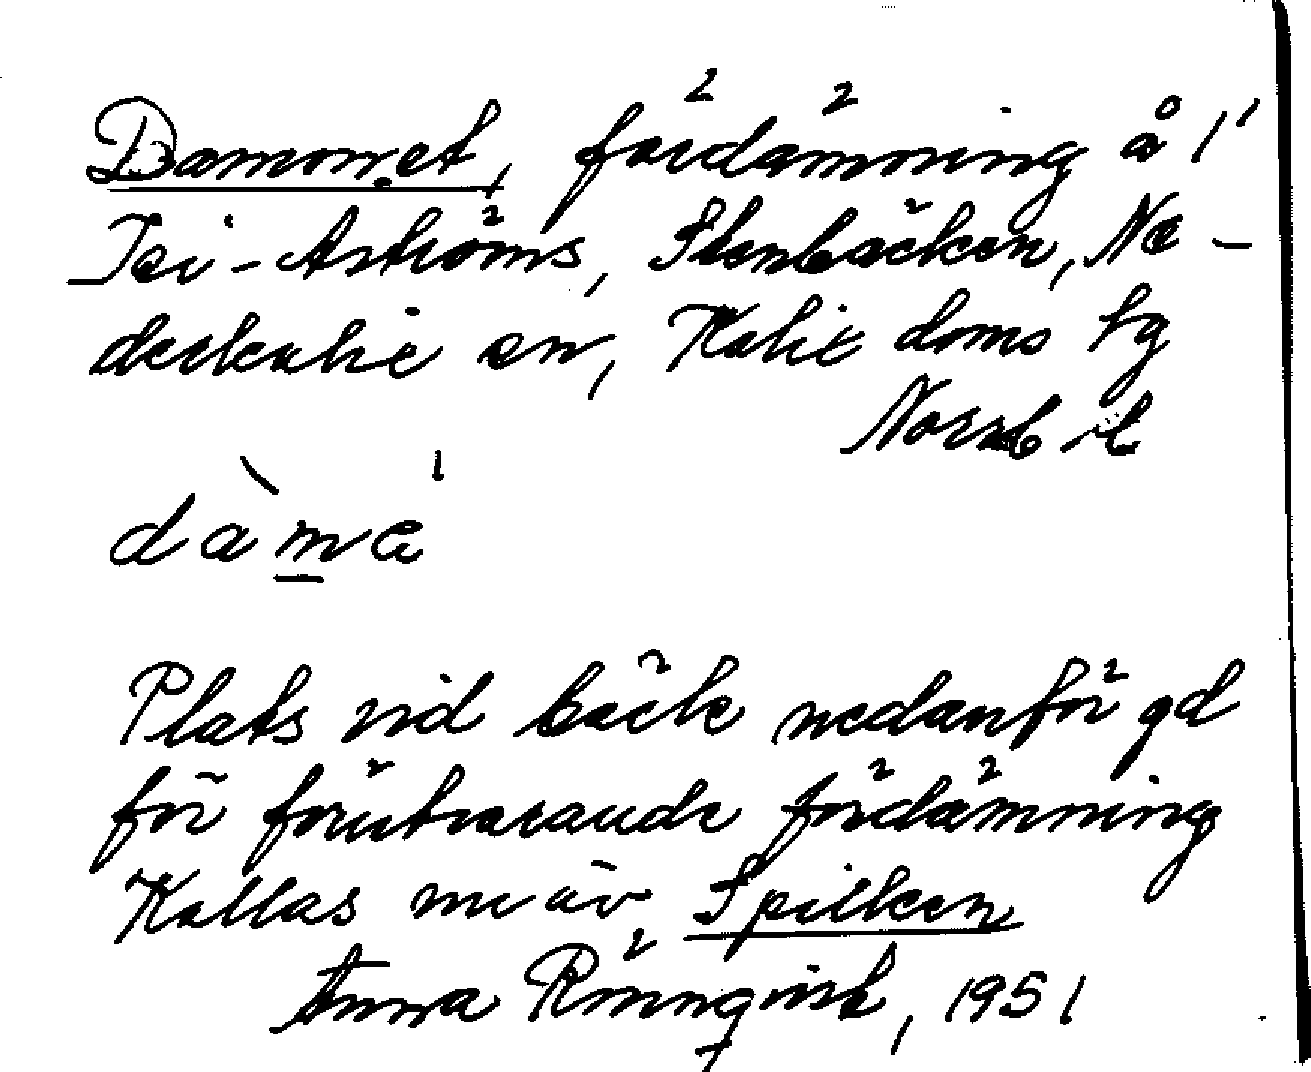 Dammet, fördämning å 1'
Isi-Aströms, Stenbäcken, Ne-
derkalix sn, Kalix doms tg
Norrb. l
dàme
Plats vid bäck nedanför gd
för förutvarande fördämning
Kallas nu äv Spilken
Anna Rönnqvist, 1951